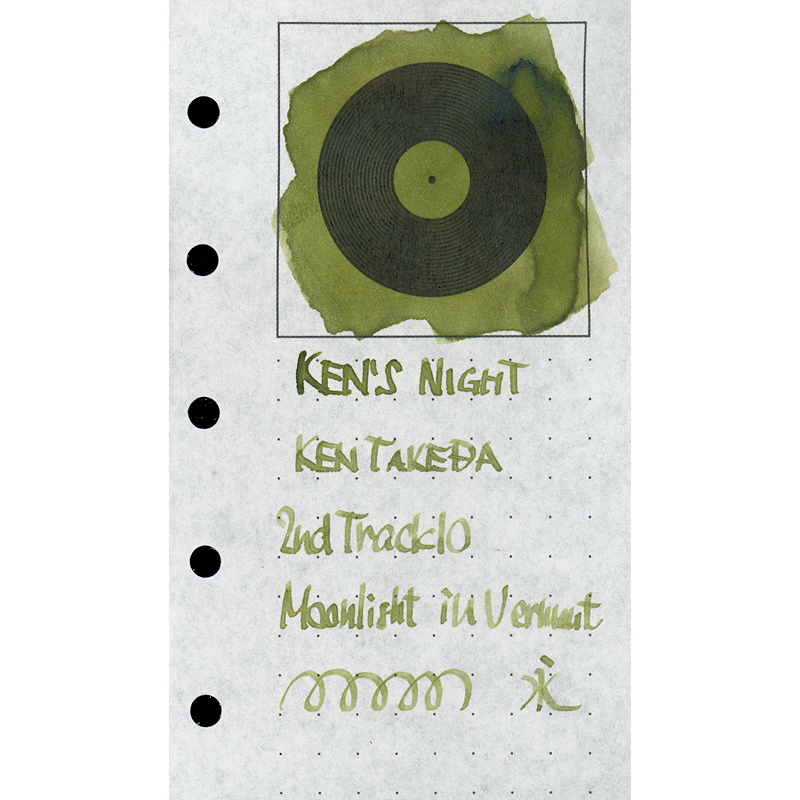 KEN'S NIGHT
KEN TAKEDA
2nd Track10
Moonlight in Vermut